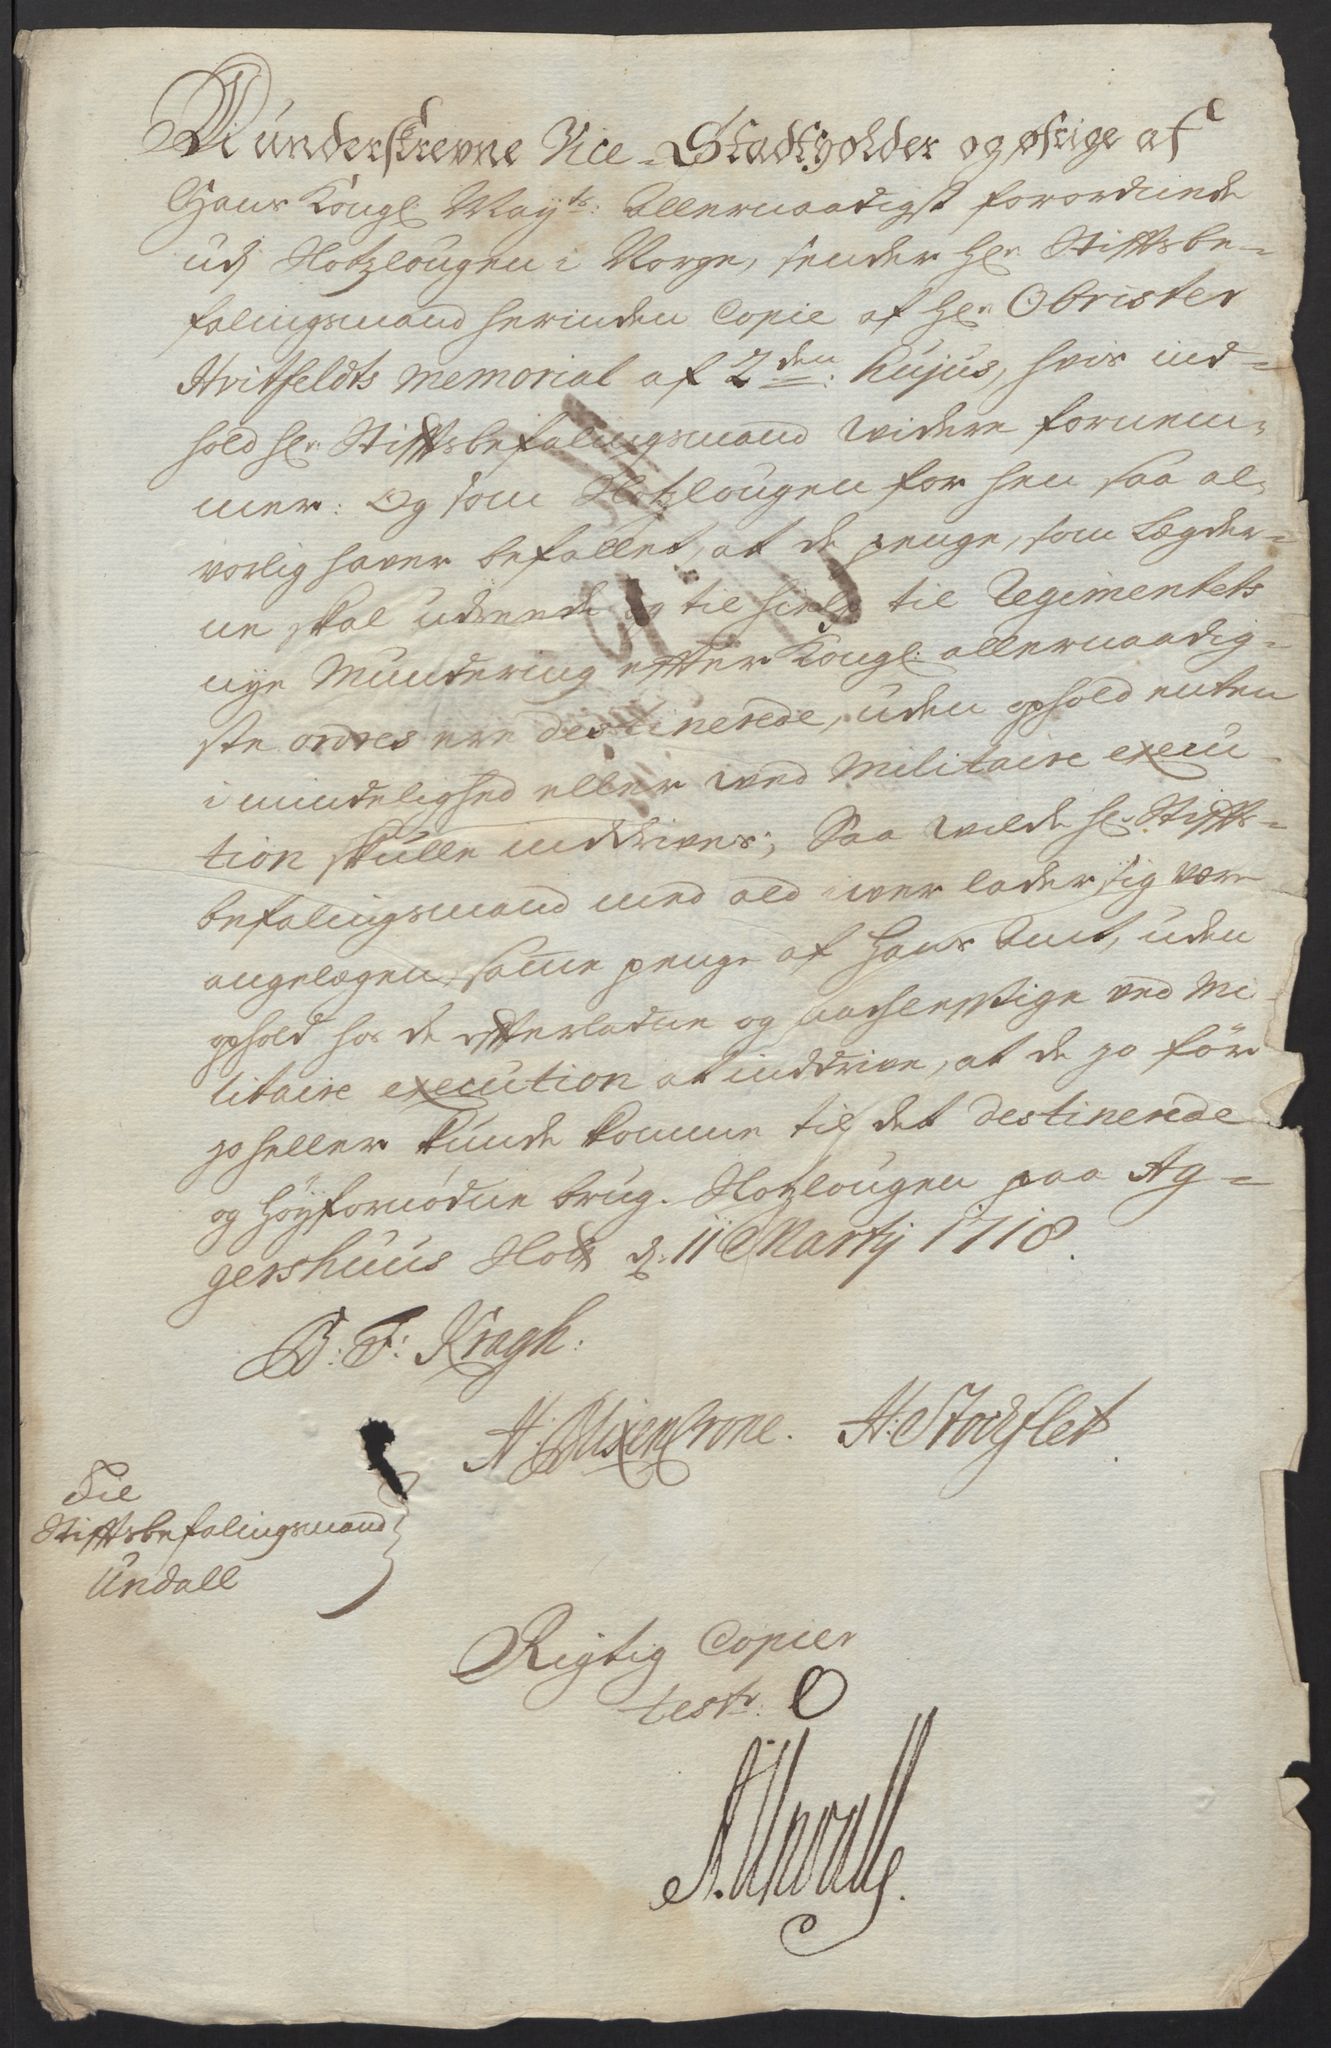 Wi underskrevne Vice-Stadtholder og øfrige af
Hans Kongl: May:ts: Allernaadigst forordnede
udj Slotzlougen i Norge, sender Hr: Stifftsbe-
falingsmand herinden Copie af Hr: Obrister
Hvitfeldts memorial af 2den: hujus, hvis ind-
hold Hr: Stifftsbefalingsmand widere fornem-
mer: Og som Slotzlougen for hen saa al-
vorlig haver befallet, at de penge, som Lægder-
ne skal udreede og til hielp til Regimentets
nye Mundering effter Kongl: allernaadig-
ste ordres ere destinerede, uden ophold enten
i mindelighed eller wed Militaire execu-
tion skulle inddrives; Saa wilde Hr: Stiffts-
befalingsmand med ald iwer lader sig være
angelægen, samme penge af Hans Amt, uden
ophold hos de efterladne og modstrestige ved Mi-
litaire execution at inddrive, at de jo för
jo heller kunde komme til det destinerede
og höyfornödne brug. Slotzlougen paa Ag-
gershuus Slott d: 11 Martij 1718.
B: F: Kragh:
A: Blixencrone. H: Stockflet
Til
Stifftsbefalingsmand
Undall
Rigtig Copier
test:
A. Undall.